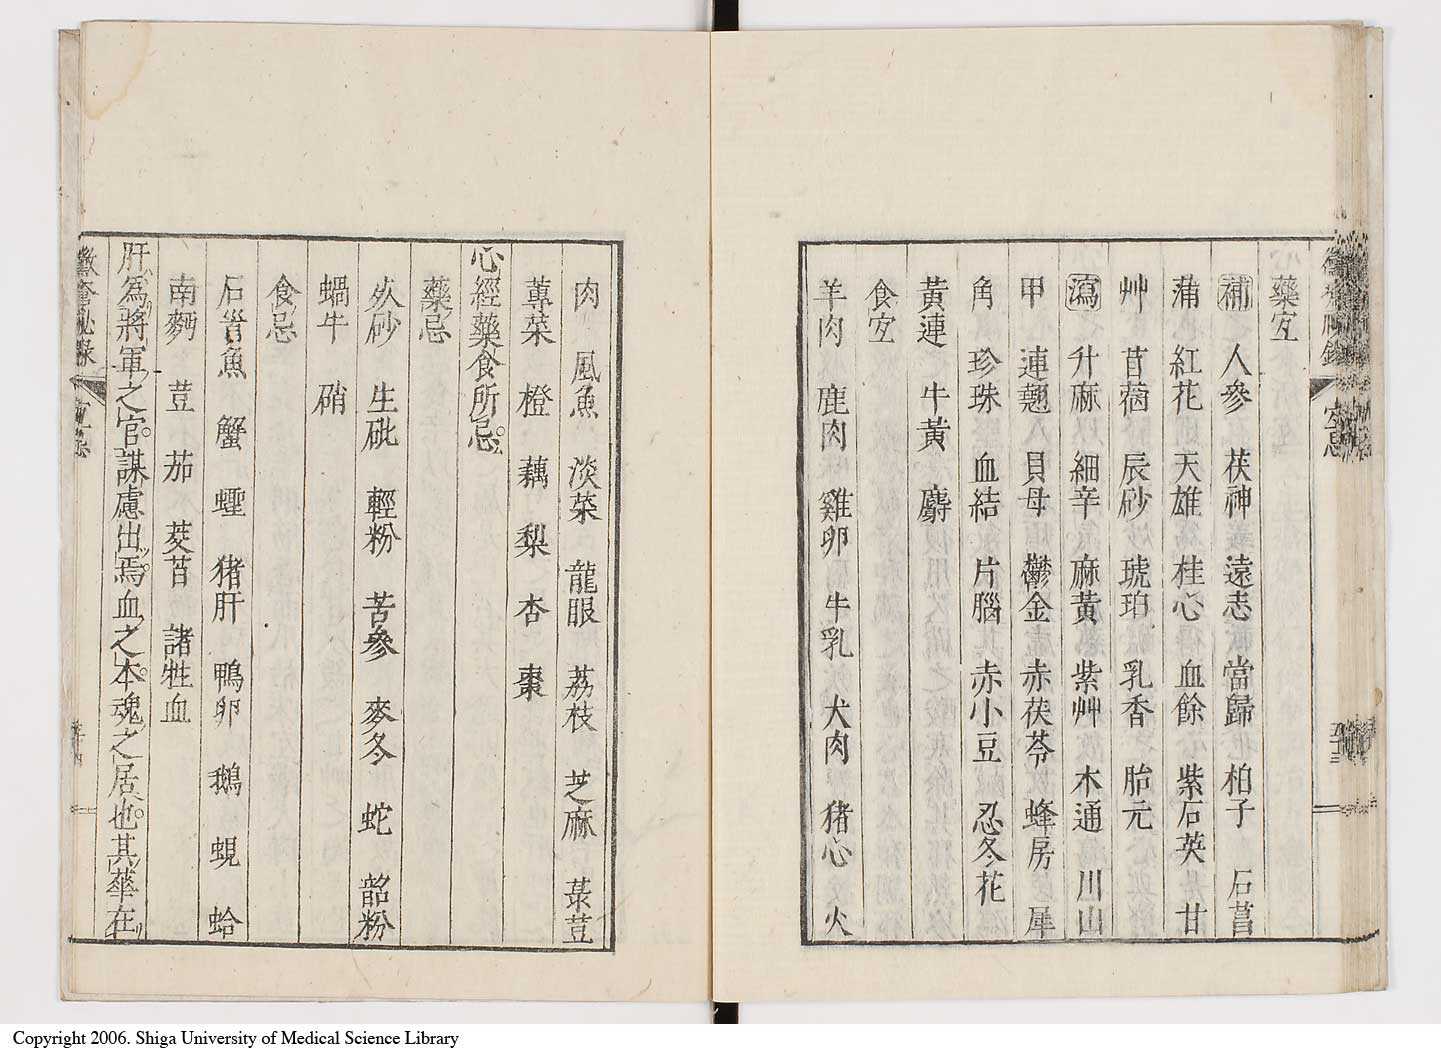 藥宐
補　人參　茯神　遠志　當歸　柏子　石菖
蒲　紅花　天雄　桂心　血餘　紫石英　甘
艸　苜蓿　辰砂　琥珀　乳香　胎元
瀉　升麻　細辛　麻黃　紫艸　木通　川山
甲　連翹　貝母　鬱金　赤茯苓　蜂房　犀
角　珍珠　血結　片腦　赤小豆　忍冬花
黃連　牛黃　麝
食宐
羊肉　鹿肉　雞卵　牛乳　犬肉　猪心　火
肉　風魚　淡菜　龍眼　荔枝　芝麻　菉荳
蓴菜　橙　藕　梨　杏　棗
心經藥食所忌
藥忌
生砒　輕粉　苦參　麥冬　蛇　韶粉
蝸牛　硝
食忌
石首魚　蟹　蟶　猪肝　鴨卵　鵝　蜆　蛤
南麪　荳　茄　茭苩　諸牲血
肝為將軍之官謀慮出焉血之本魂之居也其華在
黴瘡秘錄　宐忌　五十四
Copyright 2006. Shiga University of Medical Science Library